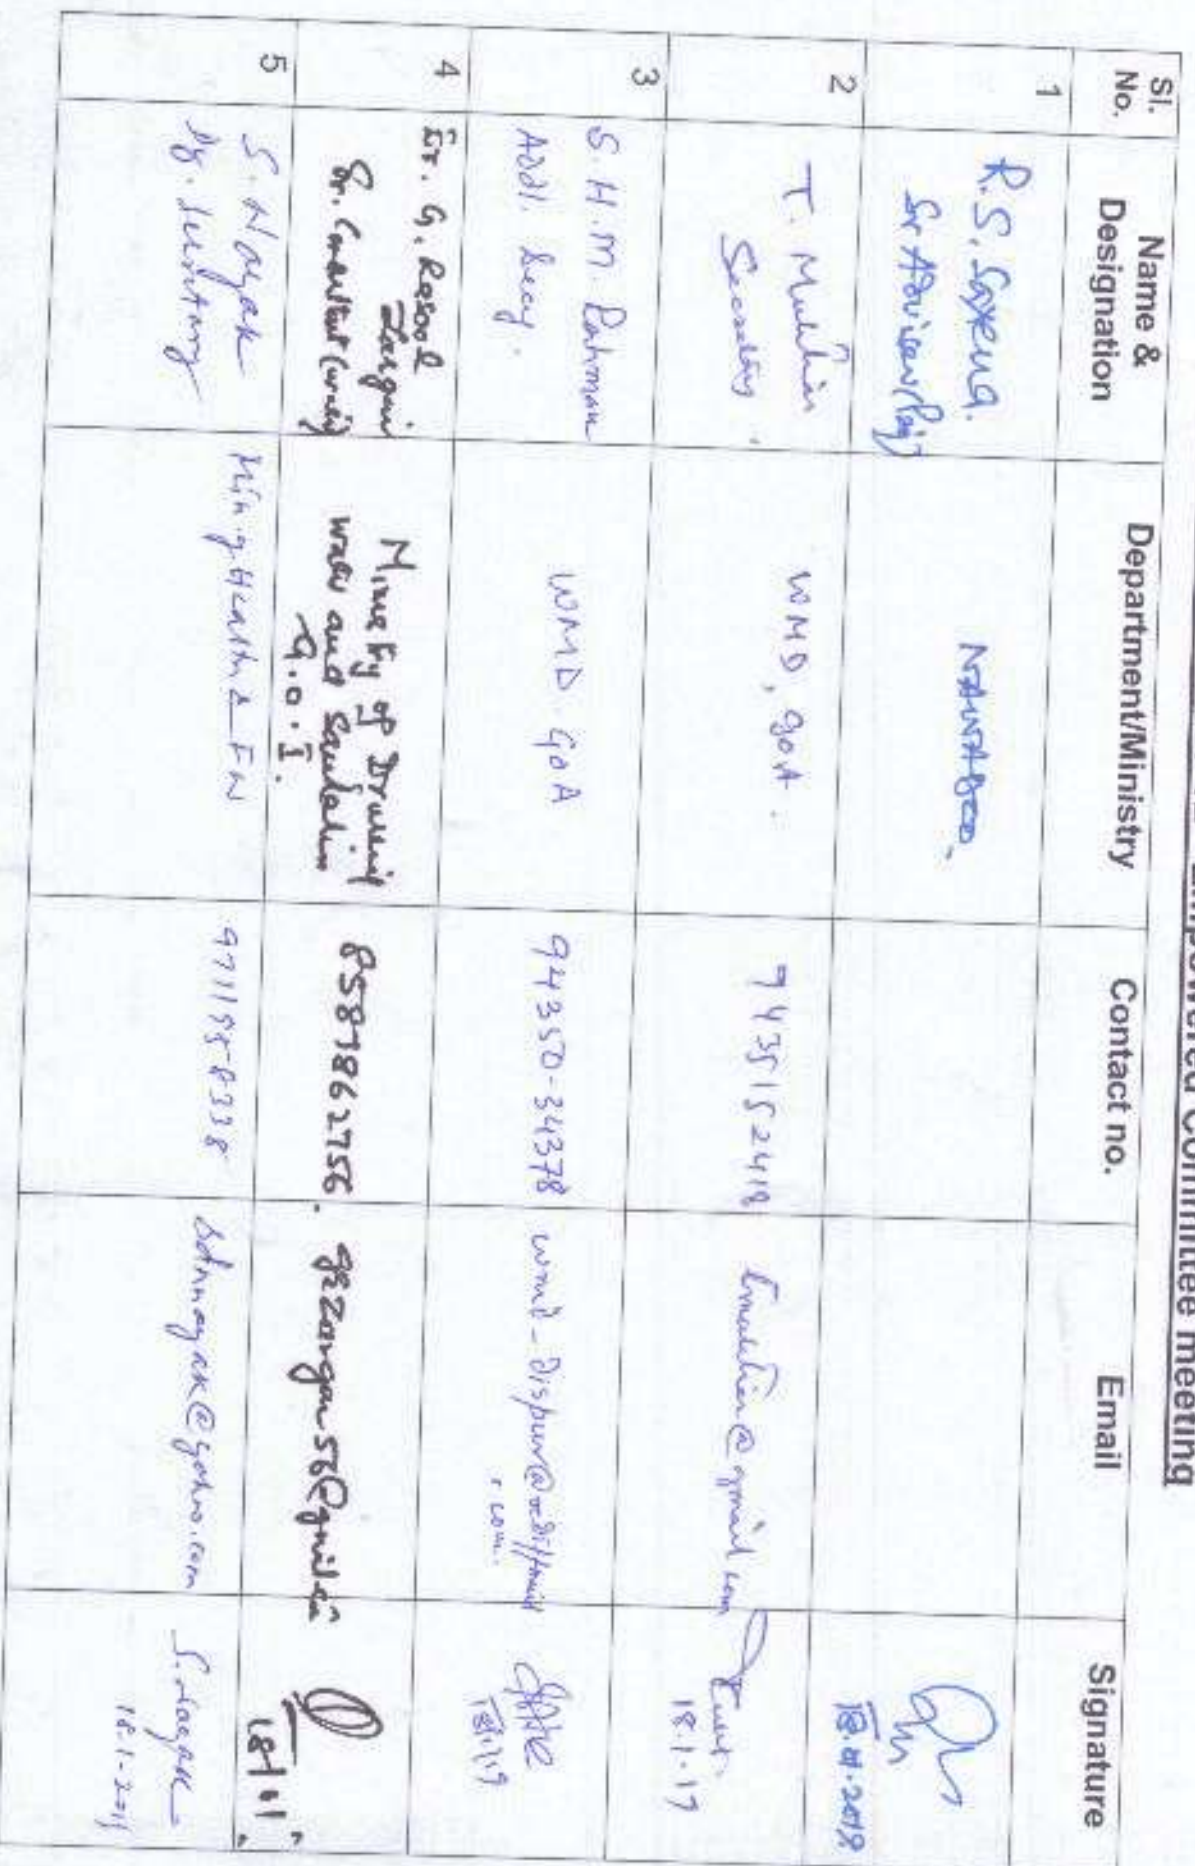 Empowered Committee meeting
Sl. No.
Name & Designation
Department/Ministry
Contact no.
Email
Signature
1
R.S. Saxena.
Sr Adviser
18.01.2019
2
T. Muthian
Secretary
WMD, GOA.
9435152418
@gmail.com
18.1.19
3
S.H.M. Rahman
Addl. Secy.
WMD. GoA
94350-34378
wmd-dispur@rediffmail
.com.
18/1/19
4
Er. G. Rasool
Zargar
Sr. Consultant (Water)
Ministry of Drinking
water and Sanitation
G.O.I.
8587862756.
18/01
5
S. Nayak
Dy. Secretary
Min. of Health & FW
9711958338
@yahoo.com
S. Nayak
18-1-2019